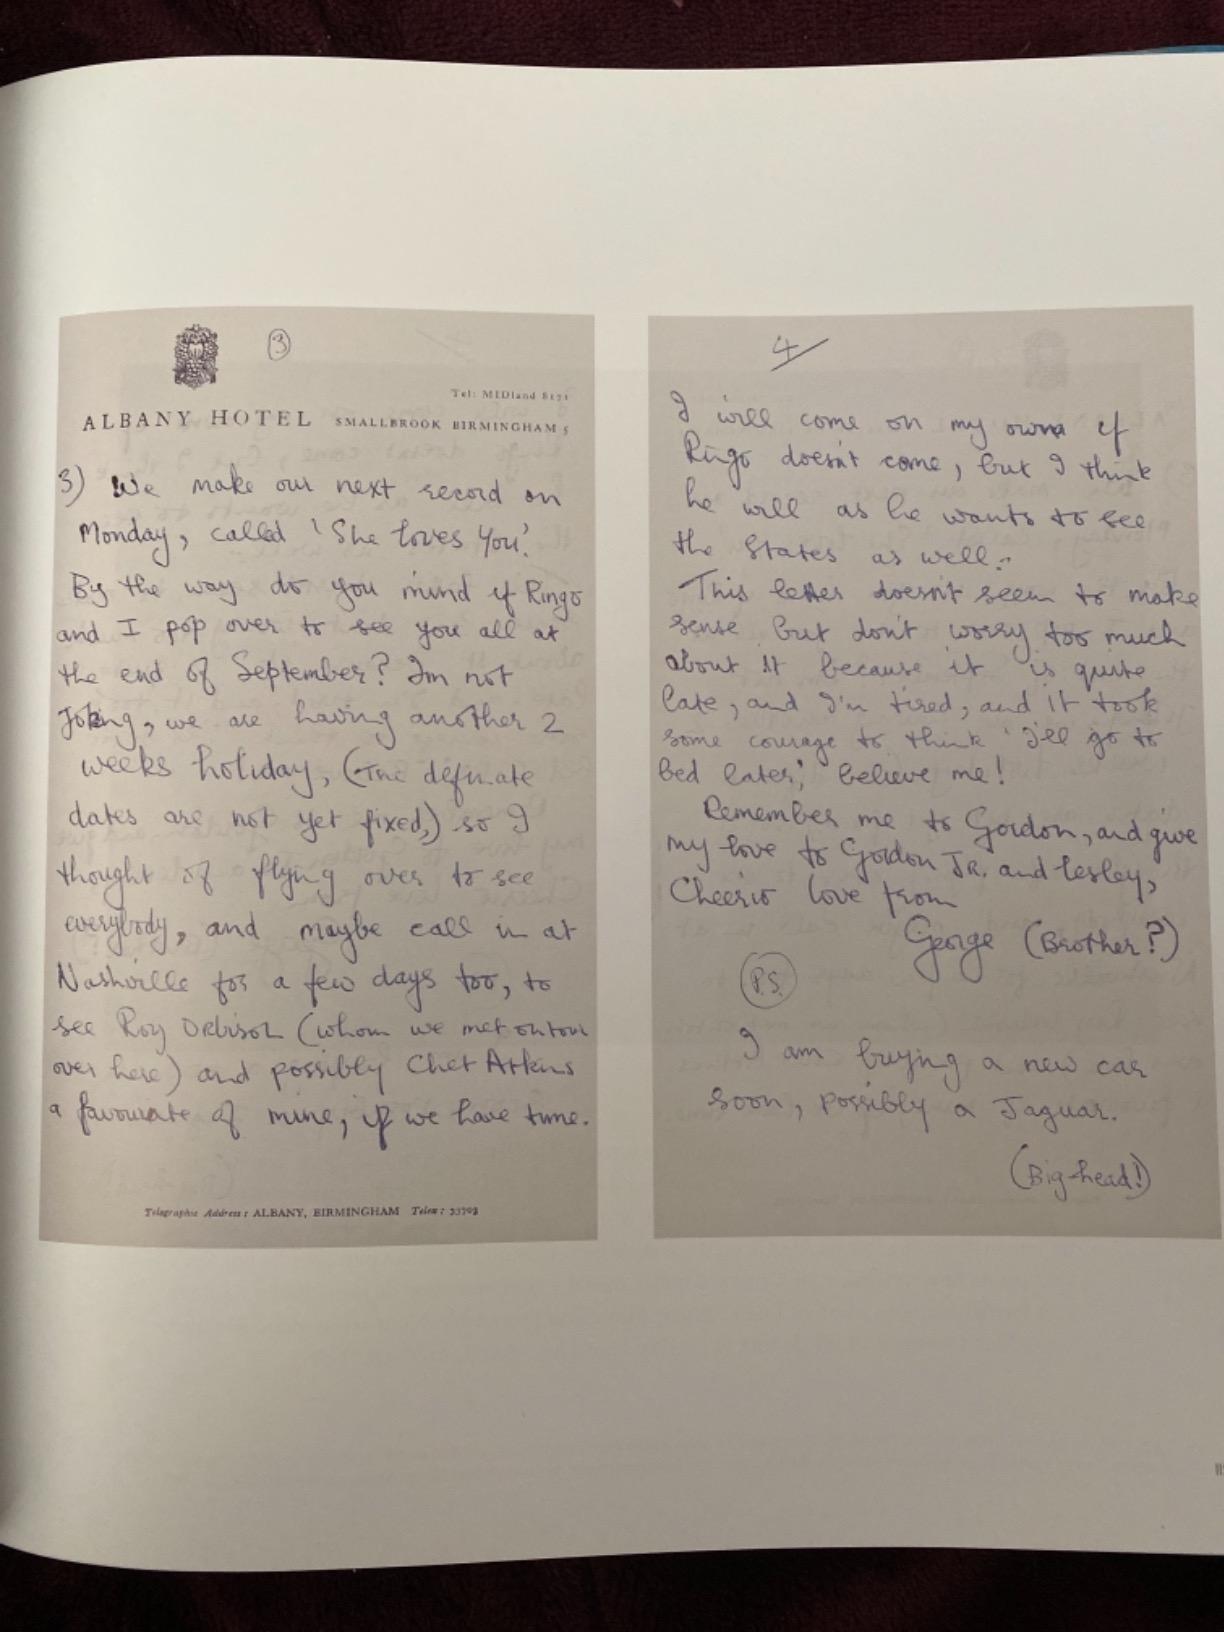 ③
Tel: MIDland 8171
ALBANY HOTEL SMALLBROOK BIRMINGHAM 5
3) We make our next record on
Monday, called 'She Loves You'.
By the way do you mind if Ringo
and I pop over to see you all at
the end of September? Im not
Joking, we are having another 2
weeks holiday, (The definate
dates are not yet fixed,) so I
thought of flying over to see
everybody, and maybe call in at
Nashville for a few days too, to
see Roy Orbison (whom we met on tour
over here) and possibly Chet Atkins
a favourate of mine, if we have time.
Telegraphic Address: ALBANY, BIRMINGHAM Telex:
4
I will come on my own if
Ringo doesn't come, but I think
he will as he wants to see
the States as well.
This letter doesn't seem to make
sense but don't worry too much
about it because it is quite
late, and I'm tired, and it took
some courage to think 'I'll go to
bed later,' believe me!
Remember me to Gordon, and give
my love to Gordon JR. and Lesley,
Cheerio love from
George (Brother?)
P.S.
I am buying a new car
soon, possibly a Jaguar.
(Big-head!)